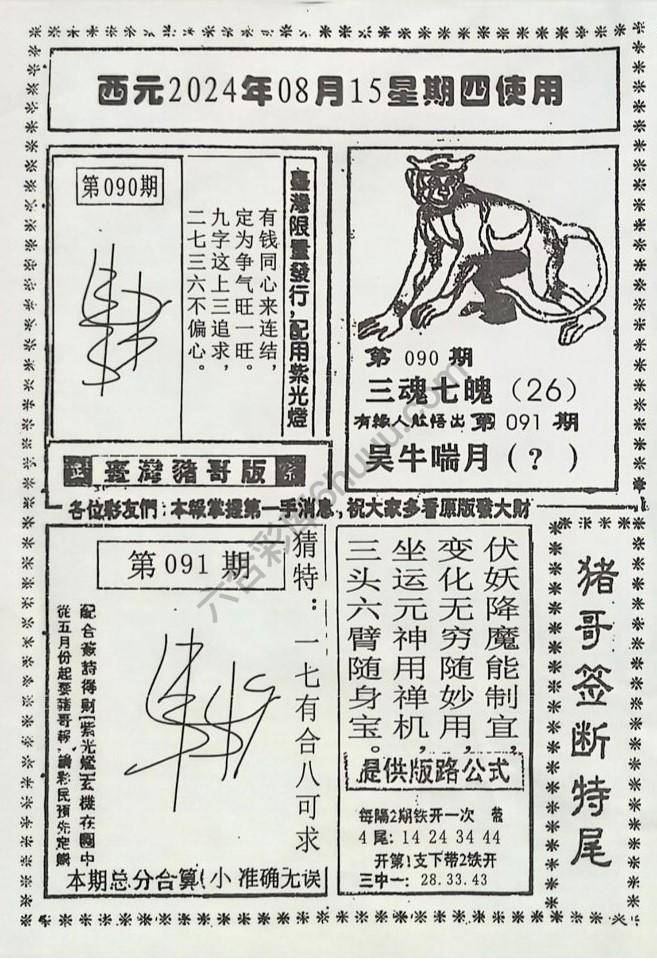 西元2024年08月15星期四使用
第090期
有钱同心来连结，
定为争气旺一旺。
九字这上三追求，
二七三六不偏心。
臺灣限量發行，配用紫光燈
第 090 期
三魂七魄（26）
有緣人能悟出 第 091 期
吴牛喘月（?）
臺灣豬哥版
各位彩友們：本報掌握第一手消息，祝大家多看原版發大財
第091期
猜特：一七有合八可求
配合簽詩得財(紫光燈)玄機在圖中
從五月份起要豬哥報，請彩民預先定購
本期总分合算(小 准确无误
伏妖降魔能制宜，
变化无穷随妙用，
坐运元神用禅机，
三头六臂随身宝。
提供版路公式
每隔2期铁开一次
4尾: 14 24 34 44
开第1支下带2铁开
三中一: 28.33.43
猪哥签断特尾